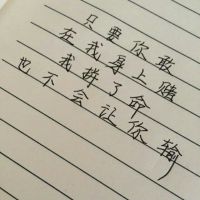 只要你敢
在我身上赌
我拼了命
也不会让你输